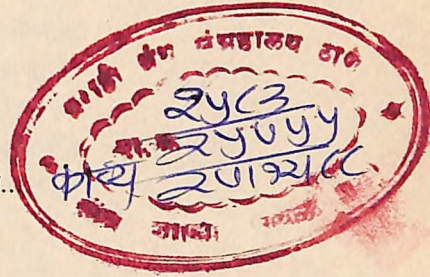 मराठी ग्रंथ संग्रहालय ठाणे
२५८३
२५७५५
काव्य २७।१२।८८
शाखा